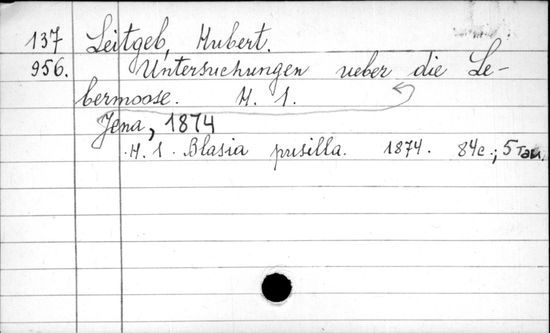 137 Leitgeb, Hubert.
956. Untersuchungen ueber die Le-
bermoose. H. 1.
Jena, 1874
H. 1. Blasia pusilla. 1874. 84c.; 5 Таб.